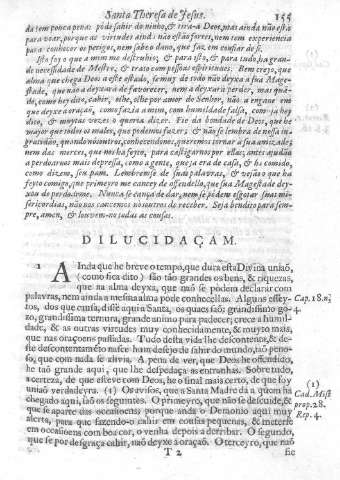 Santa Theresa de Jesus. 155
da tem pouca pena: póde sahir do ninho, & tira-a Deos, mas ainda não està
para voar, porque as virtudes ainda não estão fortes, nem tem experiencia
para conhecer os perigos, nem sabe o dano, que faz em confiar de si.
Isto foy o que a mim me destruhio; & para isto, & para tudo, ha gran-
de necessidade de Mestre, & trato com pessoas espirituaes. Bem creyo, que
alma que chega Deos a este estado, se muy de todo não deyxa a sua Mage-
stade, que não a deyxarà de favorecer, nem a deyxarà perder, mas quã-
do, como hey dito, cahir, olhe, olhe por amor do Senhor, não a engane em
que deyxe a oração, como fazia a mim, com humildade falsa, como ja hey
dito, & muytas vezes o queria dizer. Fie da bondade de Deos, que he
mayor que todos os males, que podemos fazer, & não se lembra de nossa in-
gratidão, quando nòs outros, conhecendonos, queremos tornar à sua amizade;
nem das merces, que nos ha feyto, para castigarnos por ellas; antes ajudão
a perdoarnos mais depressa, como a gente, que ja era de casa, & ha comido,
como dizem, seu pam. Lembremse de suas palavras, & vejão o que ha
feyto comigo, que primeyro me cancey de offendello, que sua Magestade dey-
xou de perdoarme. Nunca se cança de dar, nem se pòdem esgotar suas mi-
sericordias, não nos cancemos nòs outros de receber. Seja bendito para sem-
pre, amen, & louvem-no todas as cousas.
DILUCIDAÇAM.
1 AInda que he breve o tempo, que dura esta Divina uniaõ,
(como fica dito) saõ taõ grandes os bens, & riquezas,
que na alma deyxa, que naõ se pòdem declarar com
palavras, nem ainda a mesma alma pode conhecellas. Alguns effey-
tos, dos que causa, disse aqui a Santa, os quaes saõ: grandissimo go-
zo, grandissima ternura, grande animo para padecer; crece a humil-
dade, & as outras virtudes muy conhecidamente, & muyto mais,
que nas oraçoens passadas. Tudo desta vida lhe descontenta, & de-
ste descontentamẽto nasce hum desejo de sahir do mundo, taõ peno-
so, que com nada se alivia. A pena de ver, que Deos he offendido,
he taõ grande aqui, que lhe despedaça as entranhas. Sobre tudo,
a certeza, de que esteve com Deos, he o sinal mais certo, de que foy
uniaõ verdadeyra. (1) Os avisos, que a Santa Madre dà a quem ha
chegado aqui, saõ os seguintes. O primeyro, que naõ se descuide, &
que se aparte das occasioens; porque anda o Demonio aqui muy
alerta, para que fazendo-o cahir em cousas pequenas, & meterse
em occasioens com boa cor, o venha depois a derribar. O segundo,
que se por desgraça cahir, naõ deyxe a oraçaõ. O terceyro, que naõ
Cap. 18. n.
4.
(1)
Cad. Mist
prop. 28.
Rep. 4.
T 2 se